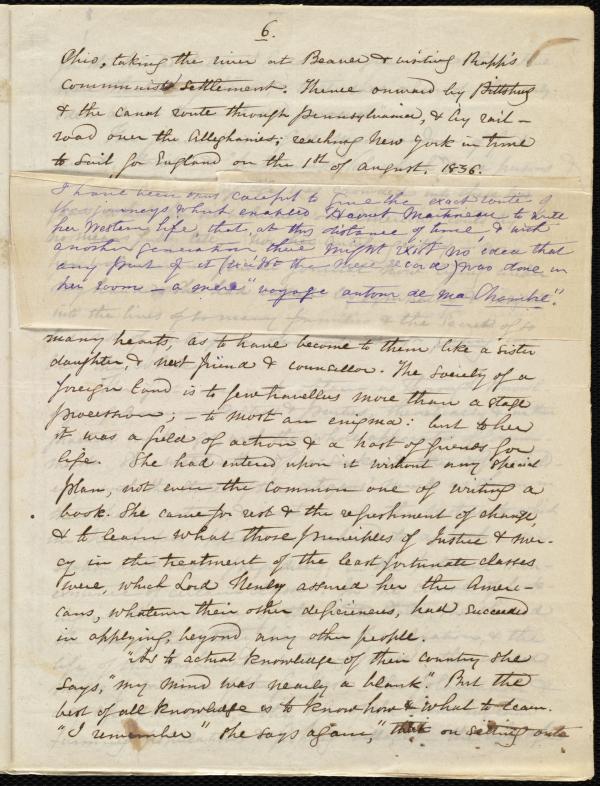 6.
Ohio, taking the river at Beaver & visiting Rapp's
Communist Settlement. Thence onward by Pittsburg
& the canal route through Pennsylvania, & by rail-
road over the Alleghanies; reaching New York in time
to Sail for England on the 1st of August. 1836.
I have been thus careful to give the exact route of
the journeys which enabled Harriet Martineau to write
her Western life, that, at this distance of time, & with
another generation there might exist no idea that
any part of it was done in
her room - a mere "voyage autour de ma Chambre".
many hearts, as to have become to them like a Sister
daughter, & next friend & councellor. The Society of a
foreign land is to few travellers more than a stage
procession; - to most an enigma: but to her
it was a field of action & a host of friends for
life. She had entered upon it without any special
plan, not even the common one of writing a
book. She came for rest & the refreshment of change,
& to learn what those principles of Justice & mer-
cy in the treatment of the least fortunate classes
were, which Lord Henley assured her the Ameri-
cans, whatever their other deficiencies, had succeeded
in applying, beyond any other people.
"As to actual knowledge of their country She
Says, "my mind was nearly a blank". But the
best of all knowledge is to know how & what to learn.
"I remember" she says again," that on setting out